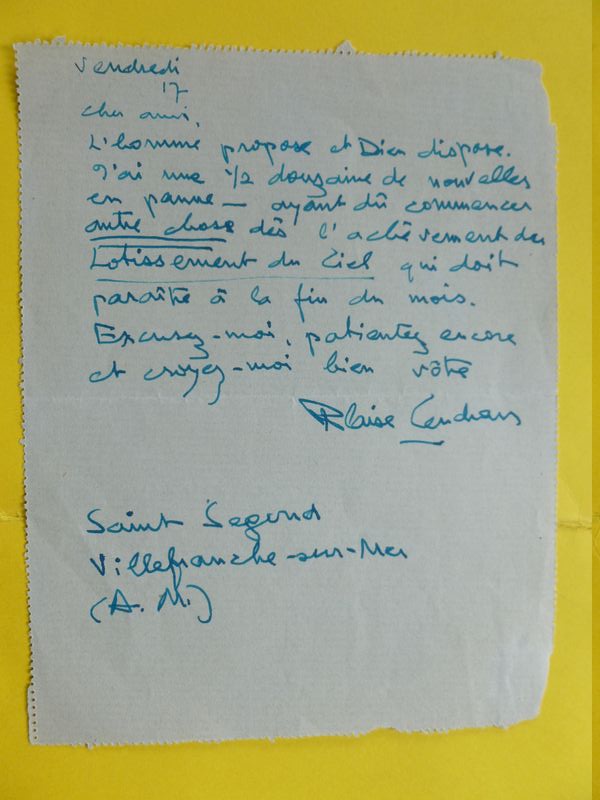 Vendredi
17
Cher ami,
L'homme propose et Dieu dispose.
J'ai une 1/2 douzaine de nouvelles
en panne – ayant dû commencer
autre chose dès l'achèvement du
Lotissement du Ciel qui doit
paraître à la fin du mois.
Excusez-moi, patientez encore
et croyez-moi bien vôtre
Blaise Cendrars
Saint Segond
Villefranche-sur-Mer
(A. M.)